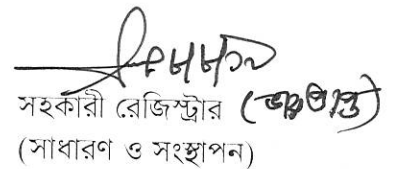 সহকারী রেজিস্ট্রার (ভারপ্রাপ্ত)
(সাধারণ ও সংস্থাপন)